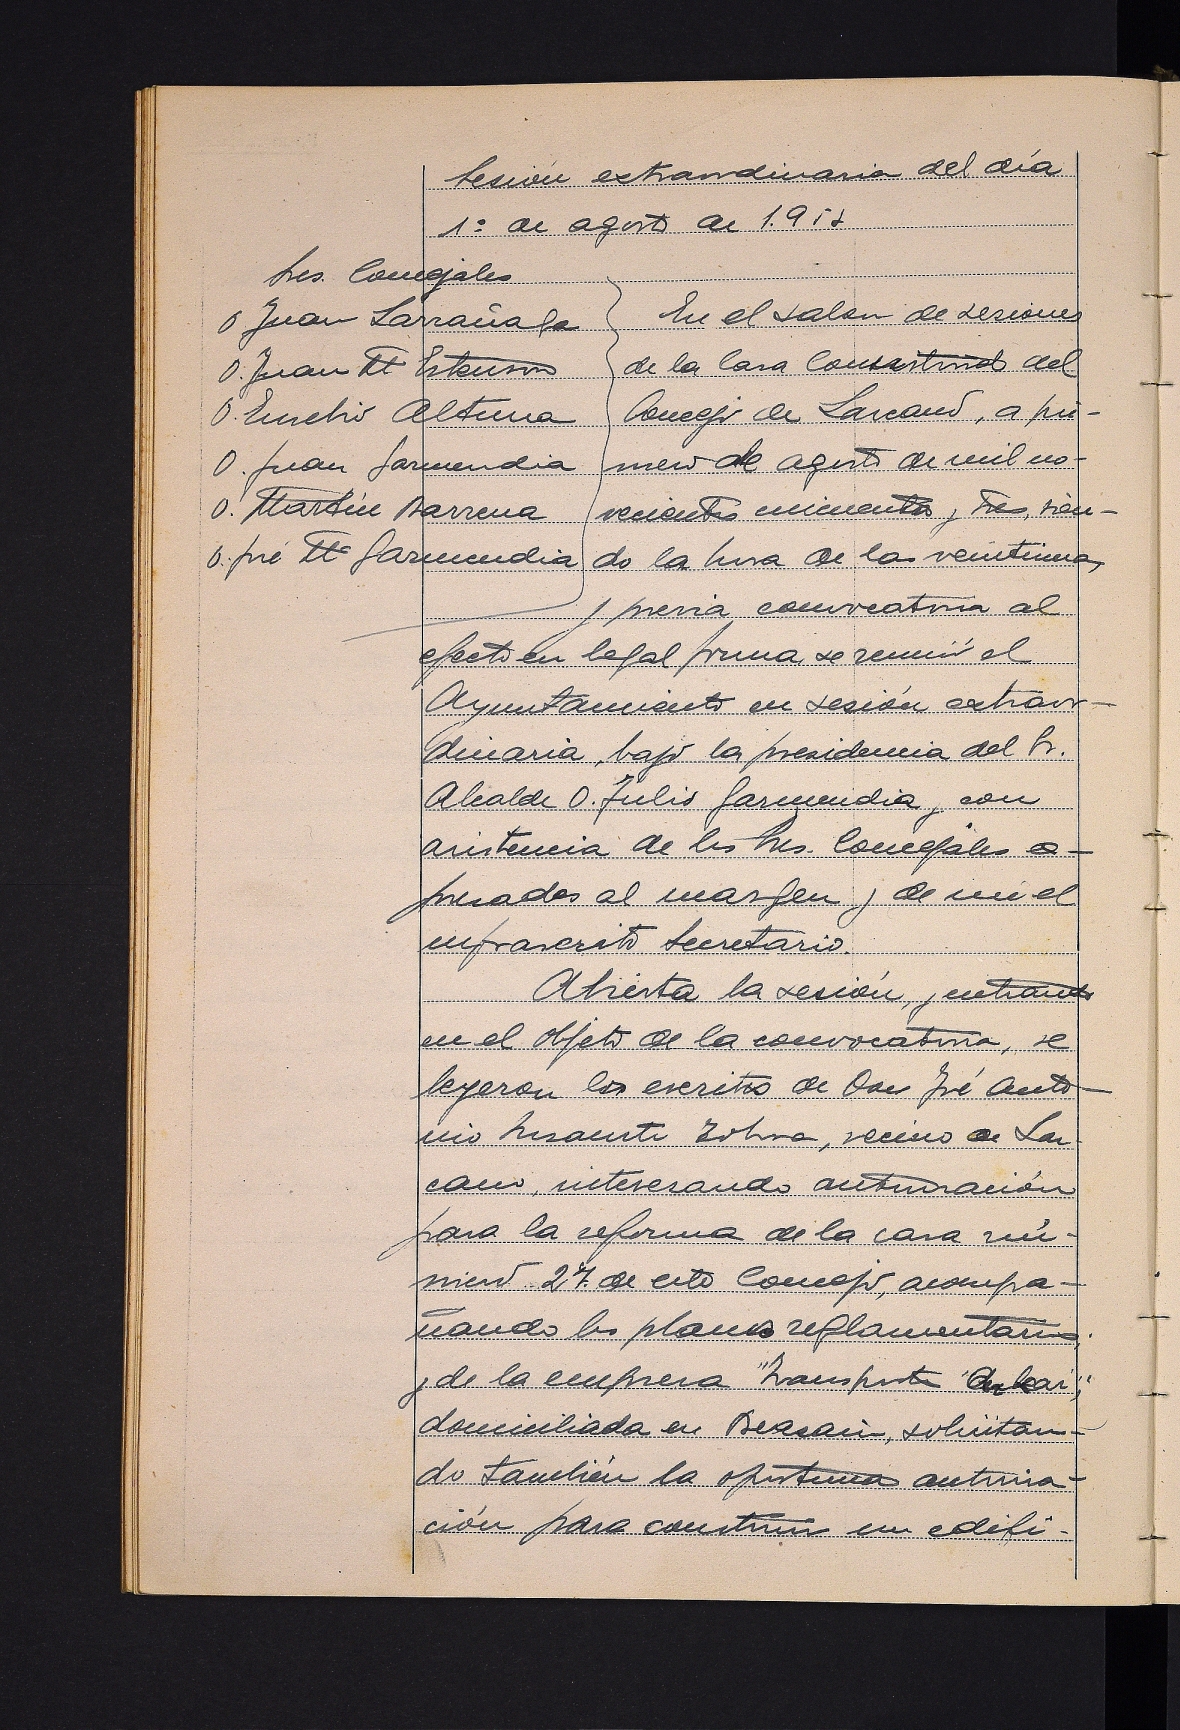 Sesión extraordinaria del día
1º de agosto de 1.953
Sres. Concejales
D Juan Larrañaga
D. Juan Mª
D. Eusebio Altuna
D. Juan Garmendia
D. Martín Barrena
D. José Mª Garmendia
En el salon de sesiones
de la Casa Consistorial del
Concejo de Lazcano, a pri-
mero de agosto de mil no-
vecientos cincuenta y tres, sien-
do la hora de las veintiuna,
y previa convocatoria al
efecto en legal forma, se reunió el
Ayuntamiento en sesión extraor-
dinaria, bajo la presidencia del Sr.
Alcalde D. Julio Garmendia, con
asistencia de los Sres. Concejales ex-
presados al margen y de mi el
infrascrito Secretario.
Abierta la sesión, y entrando
en el objeto de la convocatoria, se
leyeron los escritos de Don José Anto-
nio vecino de Laz-
cano, interesando autorización
para la reforma de la casa nú-
mero 27 de este Concejo, acompa-
ñando los planos reglamentarios;
y de la empresa "Transporte
domiciliada en Beasain, solicitan-
do también la oportuna autoriza-
ción para construir un edifi-